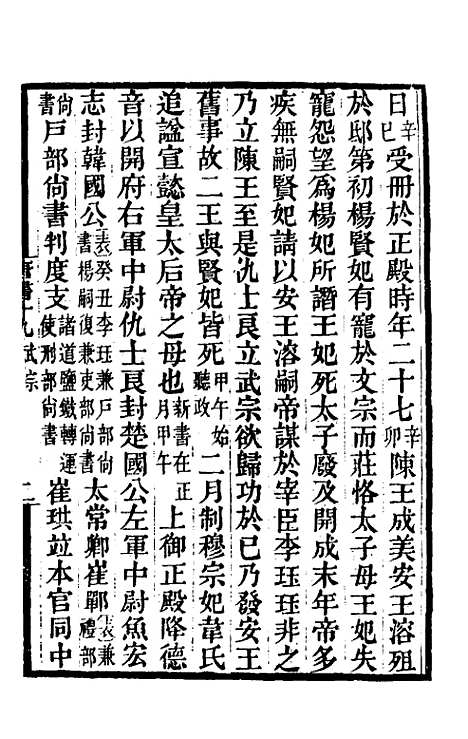 日辛巳受冊於正殿時年二十七辛卯陳王成美安王溶殂
於邸第初楊賢妃有寵於文宗而莊恪太子母王妃失
寵怨望爲楊妃所譖王妃死太子廢及開成末年帝多
疾無嗣賢妃請以安王溶嗣帝謀於宰臣李珏珏非之
乃立陳王至是仇士良立武宗欲歸功於已乃發安王
舊事故二王與賢妃皆死甲午始聽政二月制穆宗妃韋氏
追諡宣懿皇太后帝之母也新書在正月甲午上御正殿降德
音以開府右軍中尉仇士良封楚國公左軍中尉魚宏
志封韓國公表癸丑李珏兼戸部尙書楊嗣復兼吏部尙書太常卿崔鄲表兼禮部
尙書戸部尙書判度支諸道鹽鐵轉運使刑部尙書崔珙竝本官同中
唐書十九 武宗 二